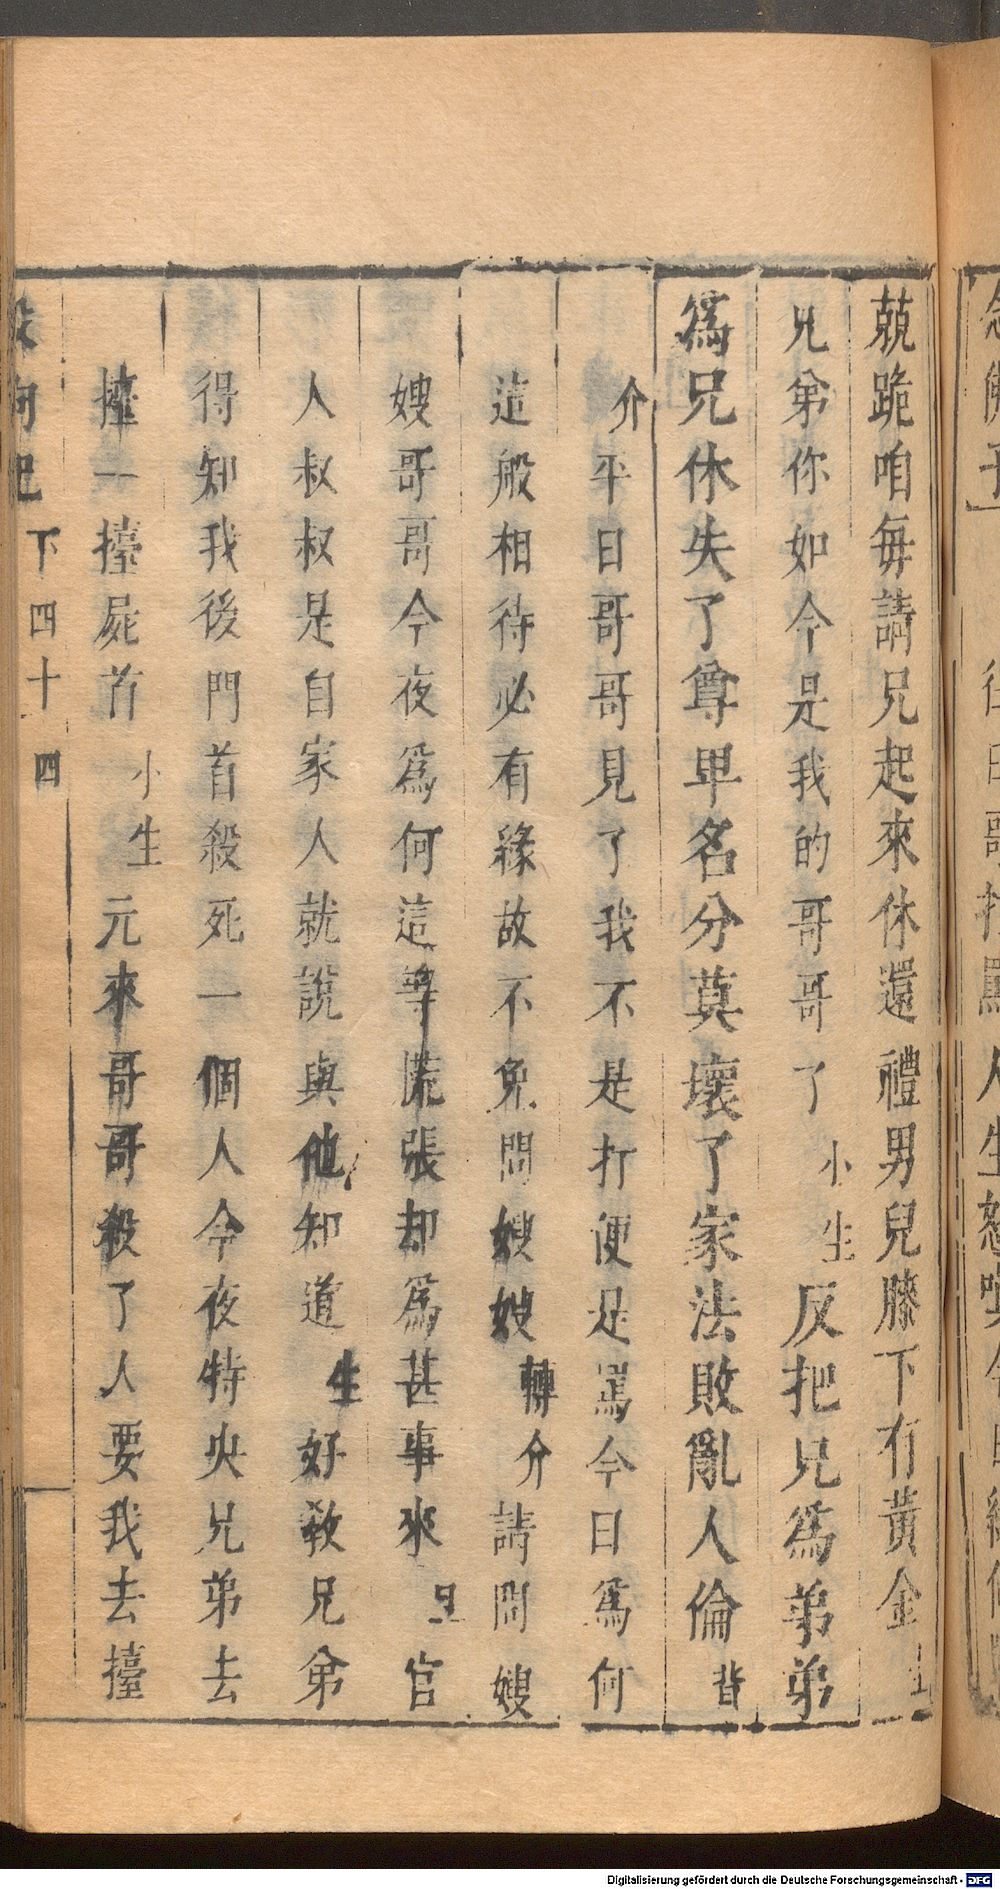 兢跪咱每請兄起來休還禮男兒膝下有黃金
兄弟你如今是我的哥哥了小生反把兄爲弟弟
爲兄休失了尊卑名分莫壞了家法敗亂人倫背
介平日哥哥見了我不是打便是罵今日爲何
這般相待必有緣故不免問嫂嫂轉介請問嫂
嫂哥哥今夜爲何這等慌張却爲甚事來旦官
人叔叔是自家人就說與他知道生好教兄弟
得知我後門首殺死一個人今夜特央兄弟去
擡一擡屍首小生元來哥哥殺了人要我去擡
殺狗記 下 四十四
Digitalisierung gefördert durch die Deutsche Forschungsgemeinschaft - DFG